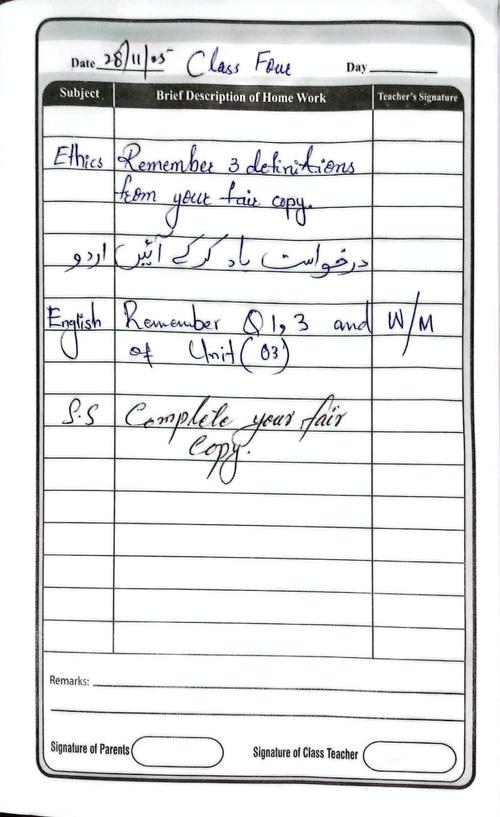 Date 28/11/05 Class Four Day
Subject Brief Description of Home Work Teacher's Signature
Ethics Remember 3 definitions
from your fair copy.
اردو درخواست یاد کرکے آئیں
English Remember Q 1, 3 and W/M
of Unit (03)
S.S Complete your fair
copy.
Remarks:
Signature of Parents Signature of Class Teacher